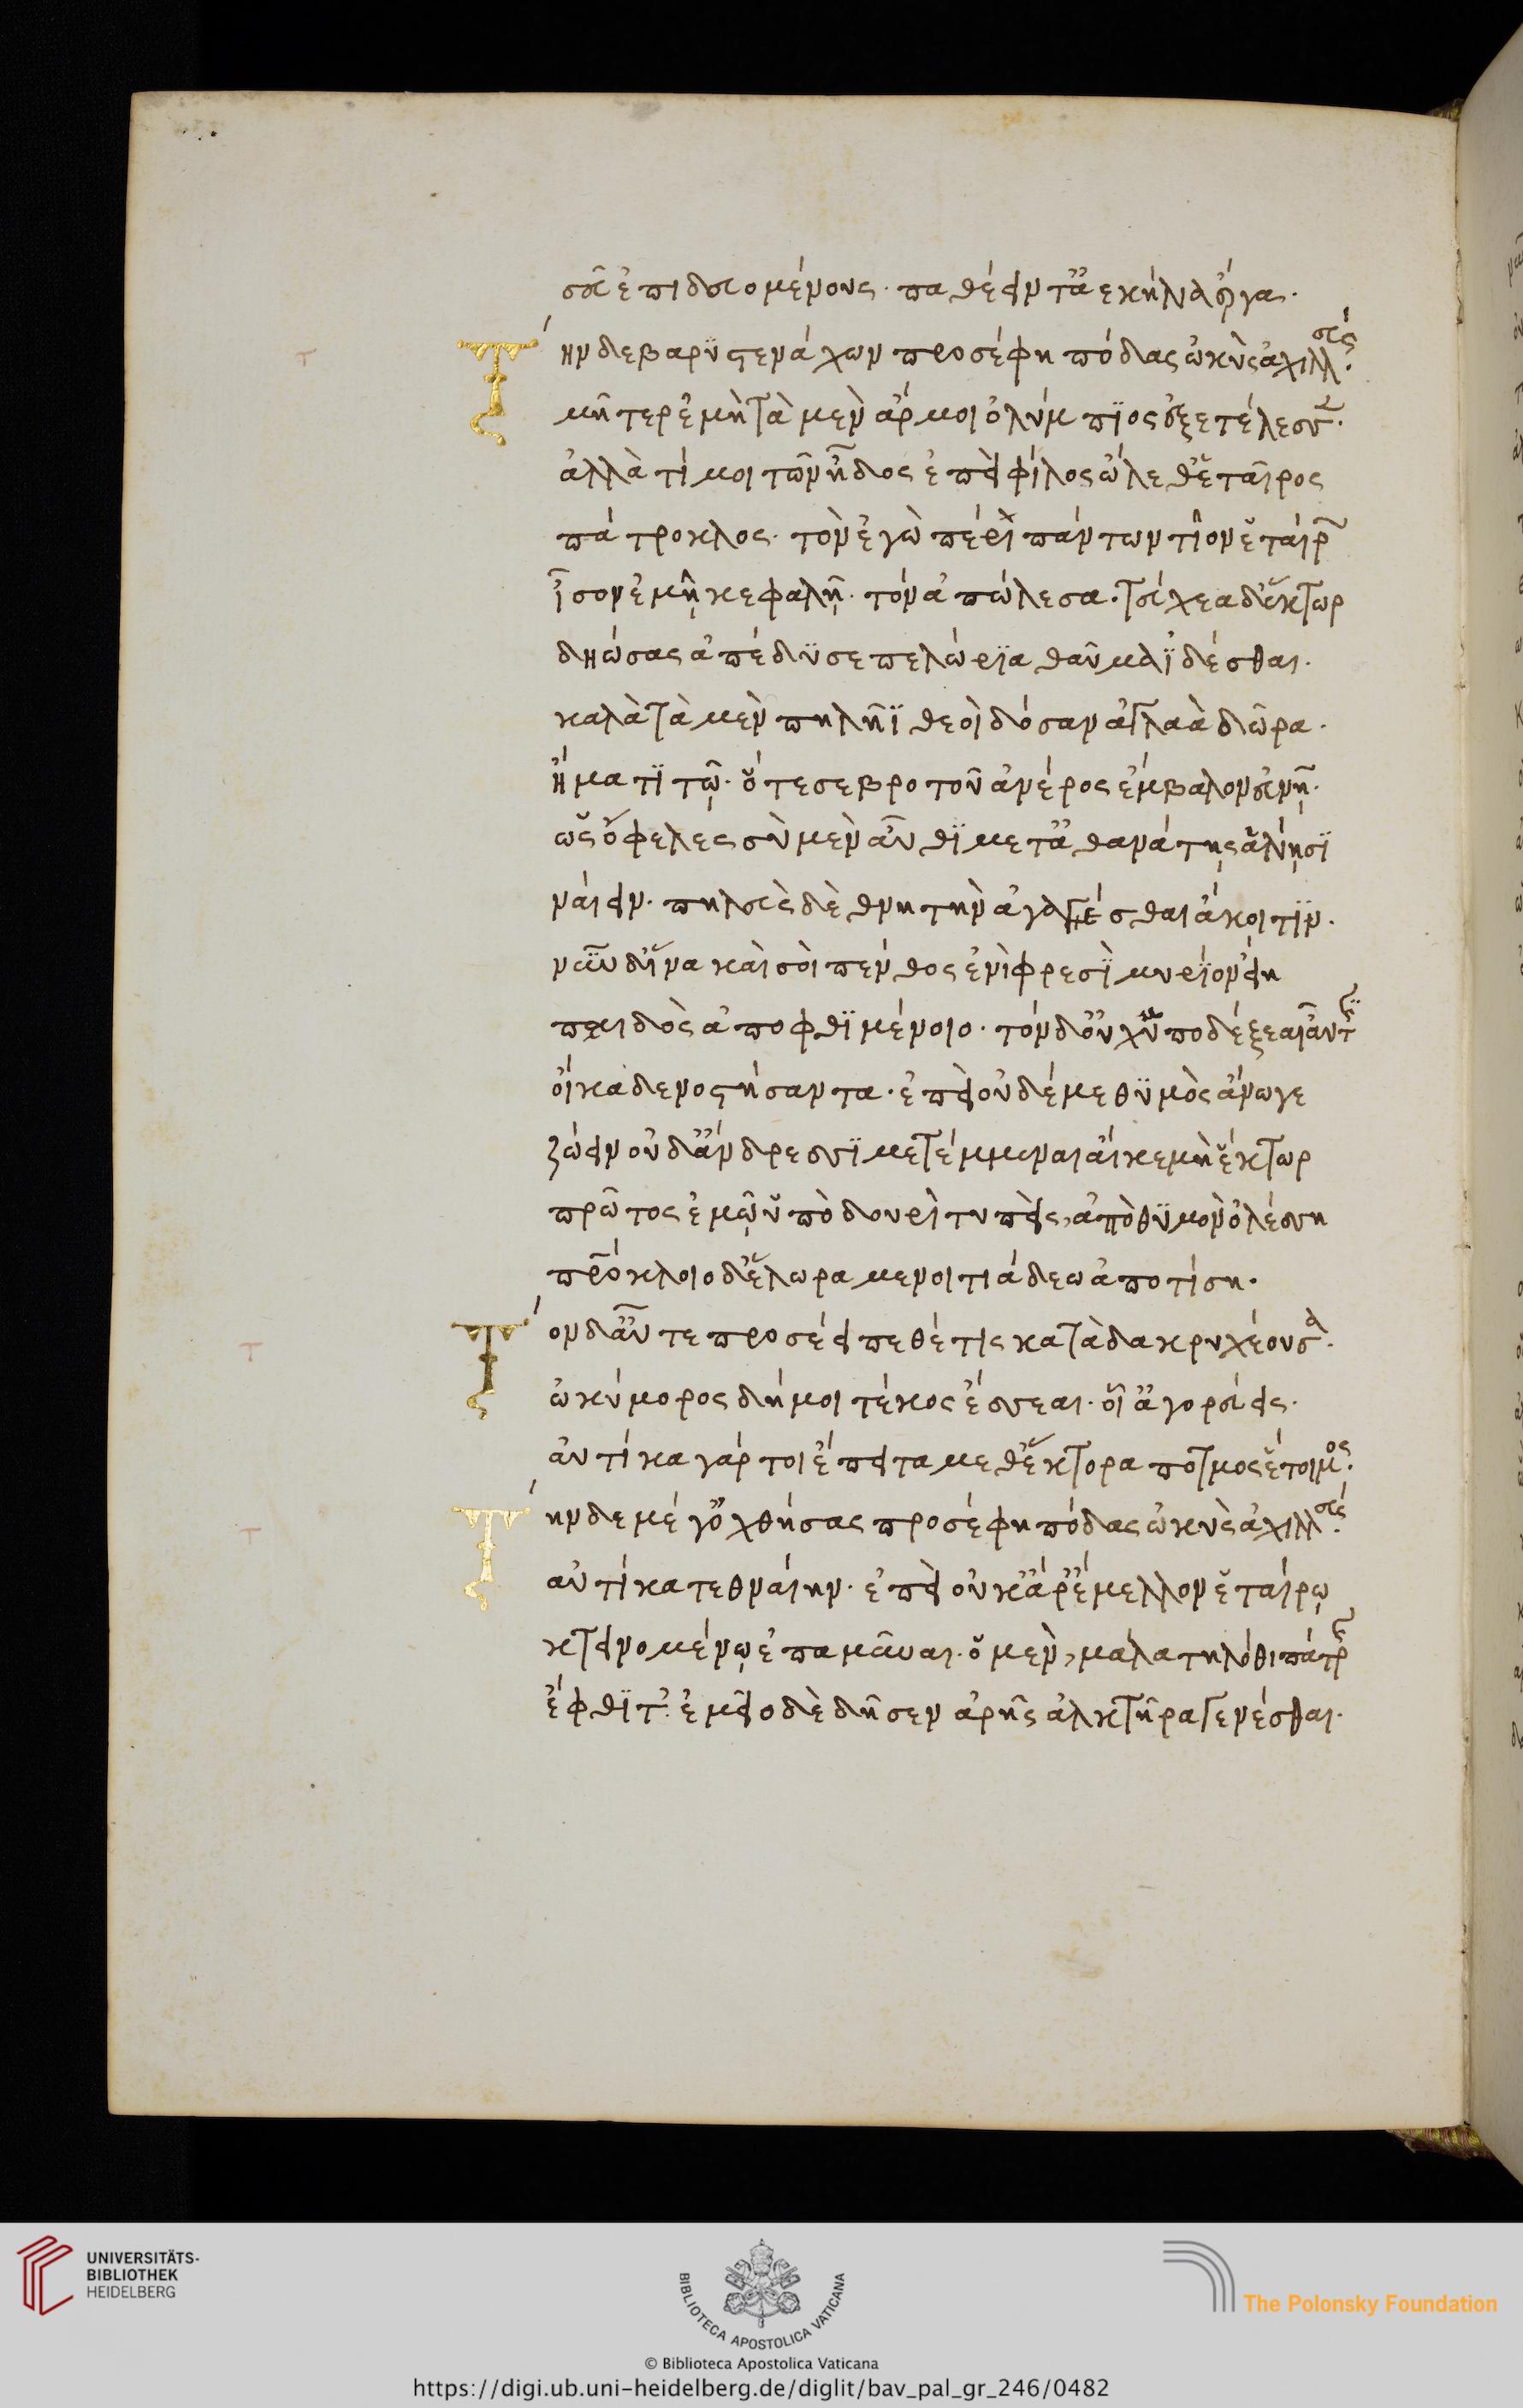 σεῦ ἐπιδευομένους· παθέειν τ' ἀεκήλια ἔργα·
Τὴν δὲ βαρϋστενάχων προσέφη πόδας ὠκὺς ἀχιλλεύς·
μῆτερ ἐμὴ τὰ μὲν ἄρ μοι ὀλύμπϊος ἐξετέλεσσεν·
ἀλλὰ τί μοι τῶν ἦδος ἐπεὶ φίλος ὤλεθ' ἑταῖρος
πάτροκλος· τὸν ἐγὼ περὶ πάντων τῖον ἑταίρων
ἶσον ἐμῇ κεφαλῇ· τόν ἀπώλεσα· τεύχεα δ' ἕκτωρ
δηώσας ἀπέδϋσε πελώρϊα θαῦμα ἰδέσθαι·
καλὰ τὰ μὲν πηλῆϊ θεοὶ δόσαν ἀγλαὰ δῶρα·
ἤματϊ τῷ· ὅτε σε βροτοῦ ἀνέρος ἔμβαλον εὐνῇ·
ὡς ὄφελες σὺ μὲν αὖθϊ μετ' ἀθανάτῃς ἁλίῃσϊ
ναίειν· πηλεὺς δὲ θνητὴν ἀγαγέσθαι ἄκοιτϊν·
νῦν δ' ἵνα καὶ σοὶ πένθος ἐνὶ φρεσῒ μυρίον εἴη
παιδὸς ἀποφθϊμένοιο· τόν δ' οὐχ ὑποδέξεαι αὖτϊς
οἴκαδε νοστήσαντα· ἐπεὶ οὐδέ με θϋμὸς ἄνωγε
ζώειν οὐδ' ἄνδρεσσϊ μετέμμεναι αἴ κε μὴ ἕκτωρ
πρῶτος ἐμῷ ὑπὸ δουρὶ τυπεὶς, ἀπὸ θϋμὸν ὀλέσση
πατρόκλοιο δ' ἕλωρα μενοιτιάδεω ἀποτίση·
Τὸν δ' αὖτε προσέειπε θέτις κατὰ δακρυχέουσα·
ὠκύμορος δή μοι τέκος ἔσσεαι· οἷ' ἀγορεύεις·
αὐτίκα γάρ τοι ἔπειτα μεθ' ἕκτορα πότμος ἕτοιμος·
Τὴν δε μέγ' ὀχθήσας προσέφη πόδας ὠκὺς ἀχιλλεύς·
αὐτίκα τεθναίην· ἐπεὶ οὐκ ἄρ' ἔμελλον ἑταίρῳ
κτεινομένῳ ἐπαμῦναι· ὁ μὲν, μάλα τηλόθι πάτρης
ἔφθϊτ'· ἐμεῖο δὲ δῆσεν ἀρῆς ἀλκτῆρα γενέσθαι·
UNIVERSITÄTS-
BIBLIOTHEK
HEIDELBERG
BIBLIOTECA APOSTOLICA VATICANA
The Polonsky Foundation
© Biblioteca Apostolica Vaticana
https://digi.ub.uni-heidelberg.de/diglit/bav_pal_gr_246/0482